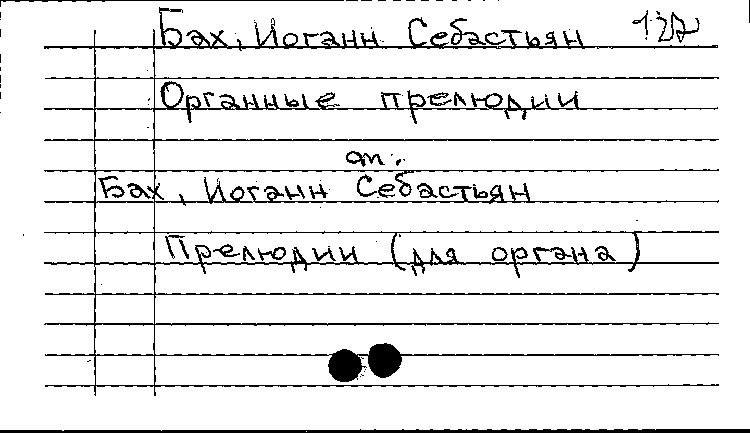 Бах, Иоганн Себастьян
Органные прелюдии
см.
Бах, Иоганн Себастьян
Прелюдии (для органа)